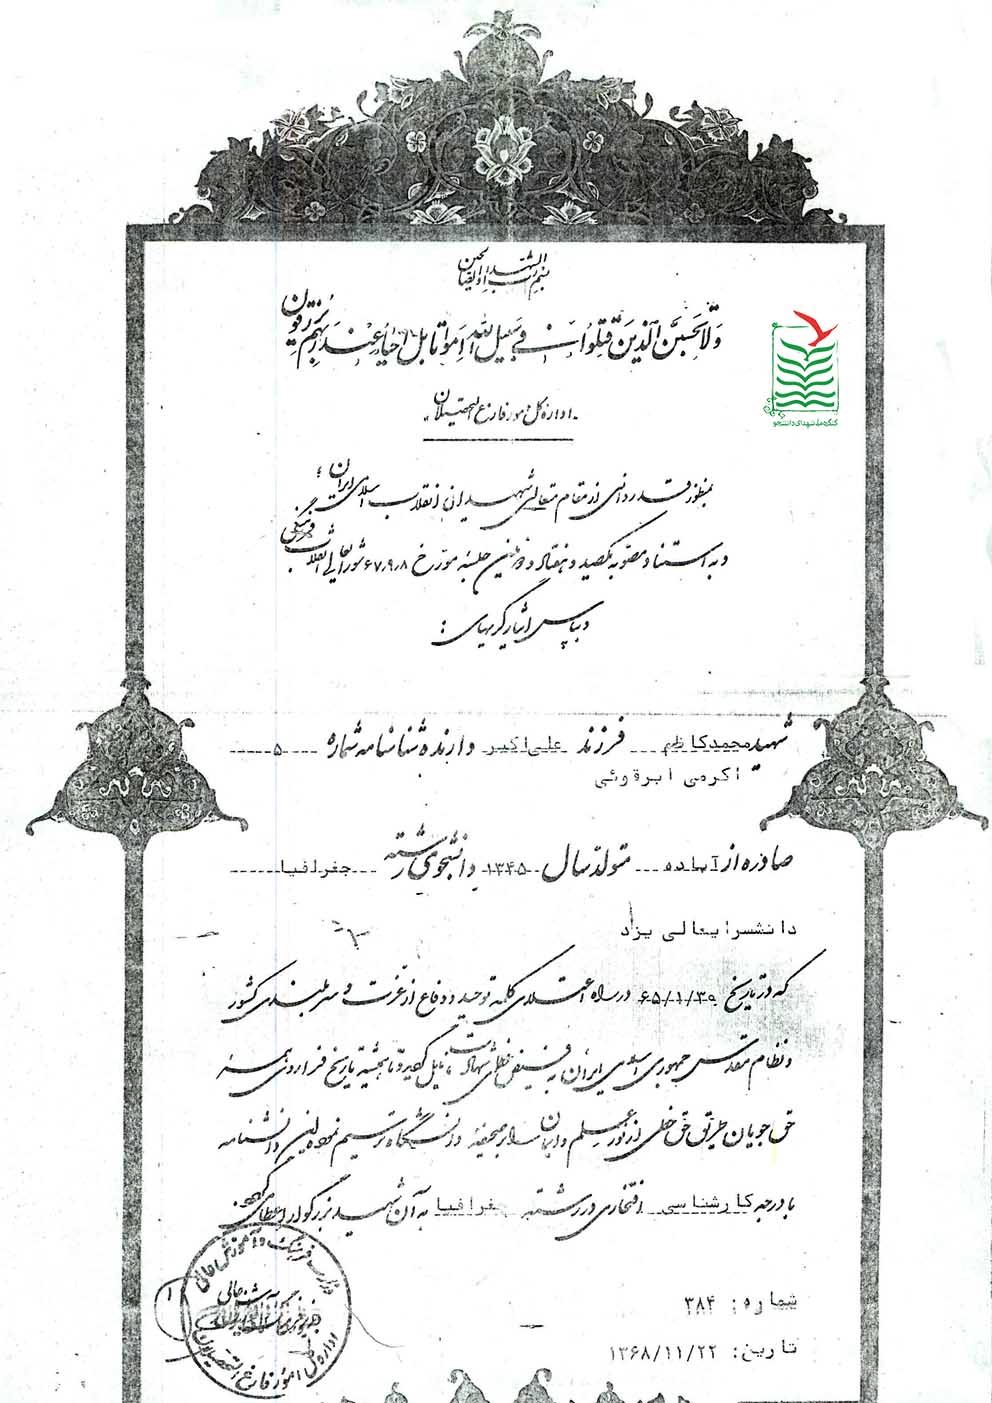 بسم رب الشهداء و الصالحین
وَلاتَحسَبَنَّ الَّذینَ قُتِلُوا فی سَبیلِ اللهِ اَمواتا بَل اَحیاءٌ عِندَ رَبِّهِم یُرزَقُون
اداره کل امور فارغ التحصیلان
کنگره ملی شهدای دانشجو
بمنظور قدردانی از مقام متعالی شهیدان انقلاب اسلامی ایران ؛
و به استناد مصوبه یکصد و هفتاد و دومین جلسه مورخ ۶۷٫۹٫۸ شورایعالی انقلاب فرهنگی
و بپاس ایثارگریهای :
شهید محمدکاظم فرزند علی اکبر دارنده شناسنامه شماره ۵
اکرمی ابرقوئی
صادره از آباده متولد سال ۱۳۴۵ دانشجوی رشته جغرافیا
دانشسرایعالی یزد
که در تاریخ ۶۵/۱/۳۰ در راه اعتلای کلمه توحید و دفاع از عزت و سربلندی کشور
و نظام مقدس جمهوری اسلامی ایران به فیض عظمای شهادت نایل گردید و تا همیشه تاریخ فرا روی همه
حق جویان طریق حق خطی از نور علم و ایمان را بر صحیفه دانشگاه ترسیم نمود این دانشنامه
با درجه کارشناسی افتخاری در رشته جغرافیا به آن شهید بزرگوار اعطا می گردد.
وزارت فرهنگ و آموزش عالی
اداره کل امور فارغ التحصیلان
شماره: ۳۸۴
تاریخ: ۱۳۶۸/۱۱/۲۲